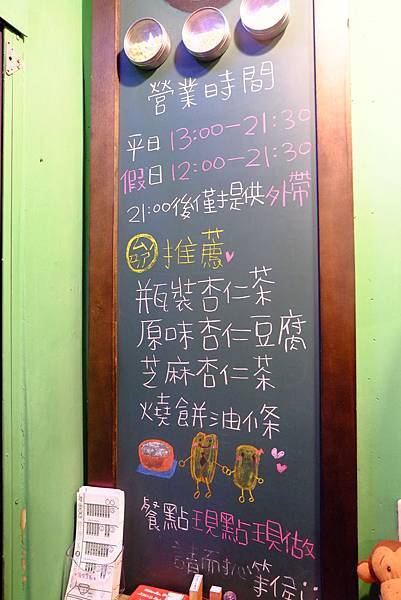 營業時間
平日13:00-21:30
假日12:00-21:30
21:00後僅提供外帶
推薦
瓶裝杏仁茶
原味杏仁豆腐
芝麻杏仁茶
燒餅油條
餐點現點現做
請耐心等候